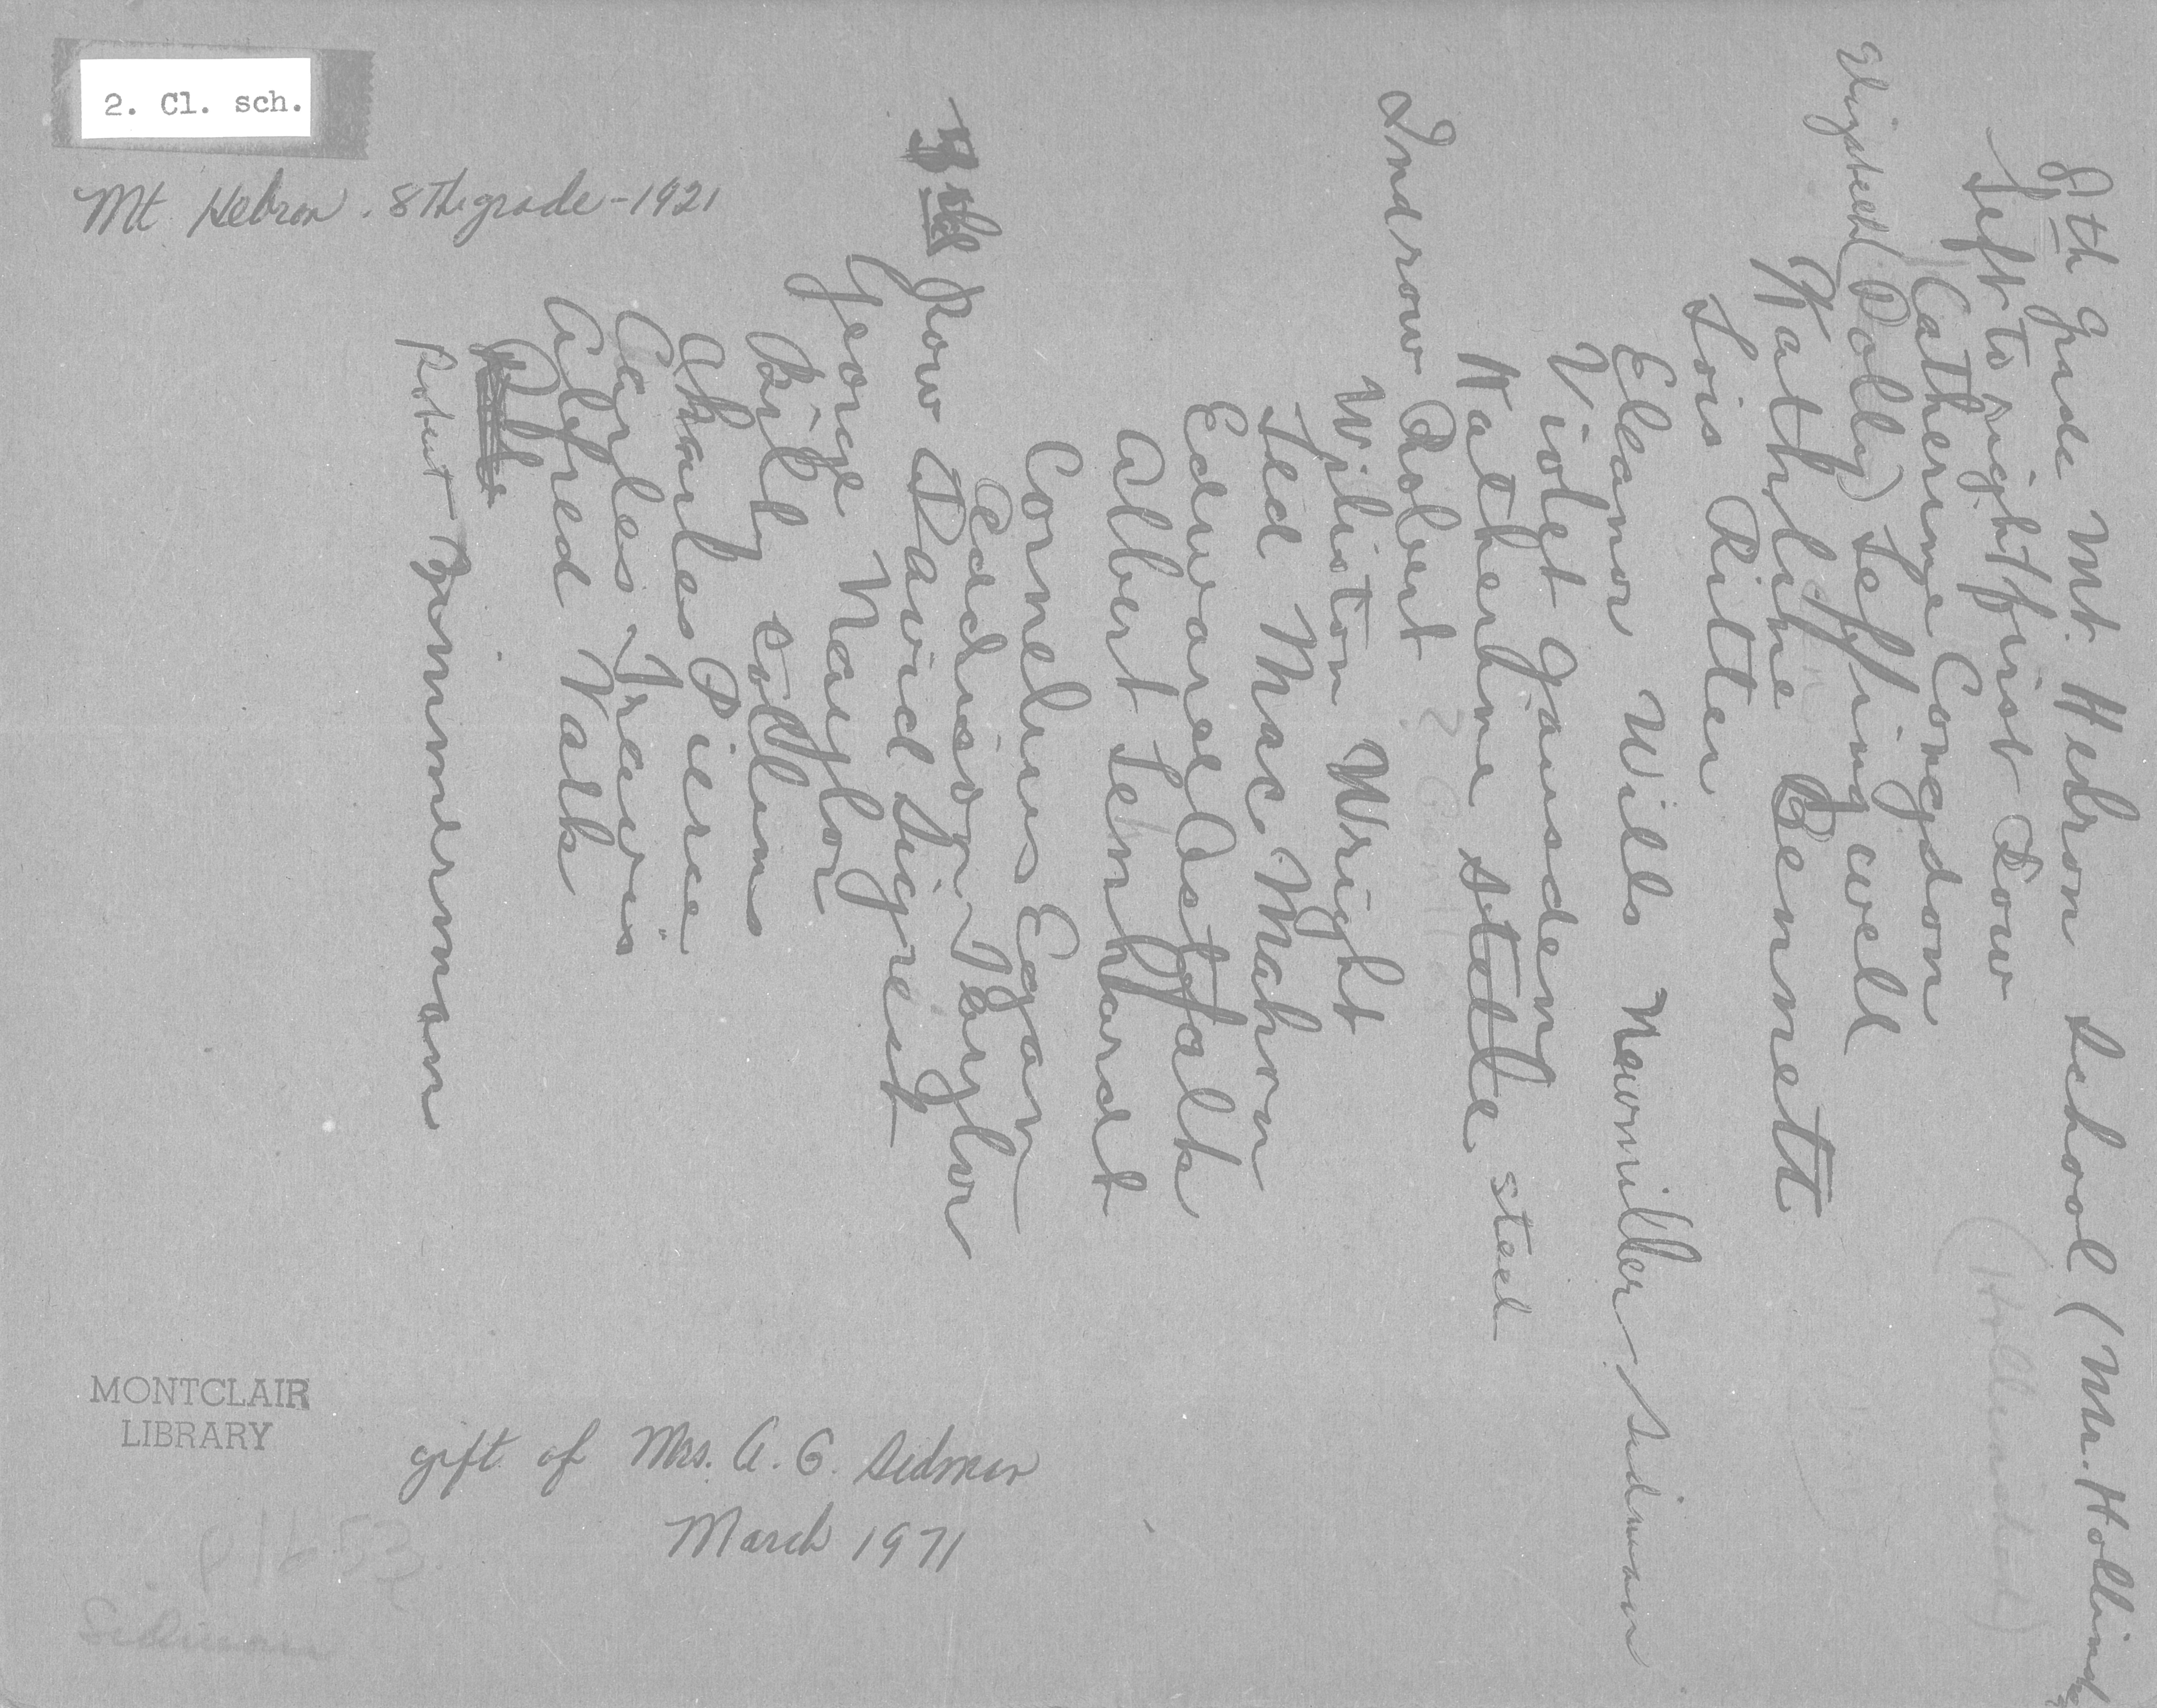 2. Cl. sch.
Mt Hebron. 8Th. grade - 1921
8th Grade Mt. Hebron School (Mr. Hollind
Left to right first Row
Catherine Congdon
Elizabeth (Polly) Leffingwell
Kathline Bennett
Lois Ritter
Eleanor Wills Newmiller Sidman
Violet Gausden
Katherine steele steel
2nd row Robert ?
Williston Wright
Ted Mac Mahon
Edward Astfalk
Albert Lenhardt
Cornelius Egan
Eddison Taylor
3rd Row David Sigrest
George Naylor
Bily collins
Charles Pierce
Carples Travis
Alfred Valk
Robert Zimmerman
MONTCLAIR
LIBRARY
gift of Mrs. A. G. Sidman
March 1971
Sidman